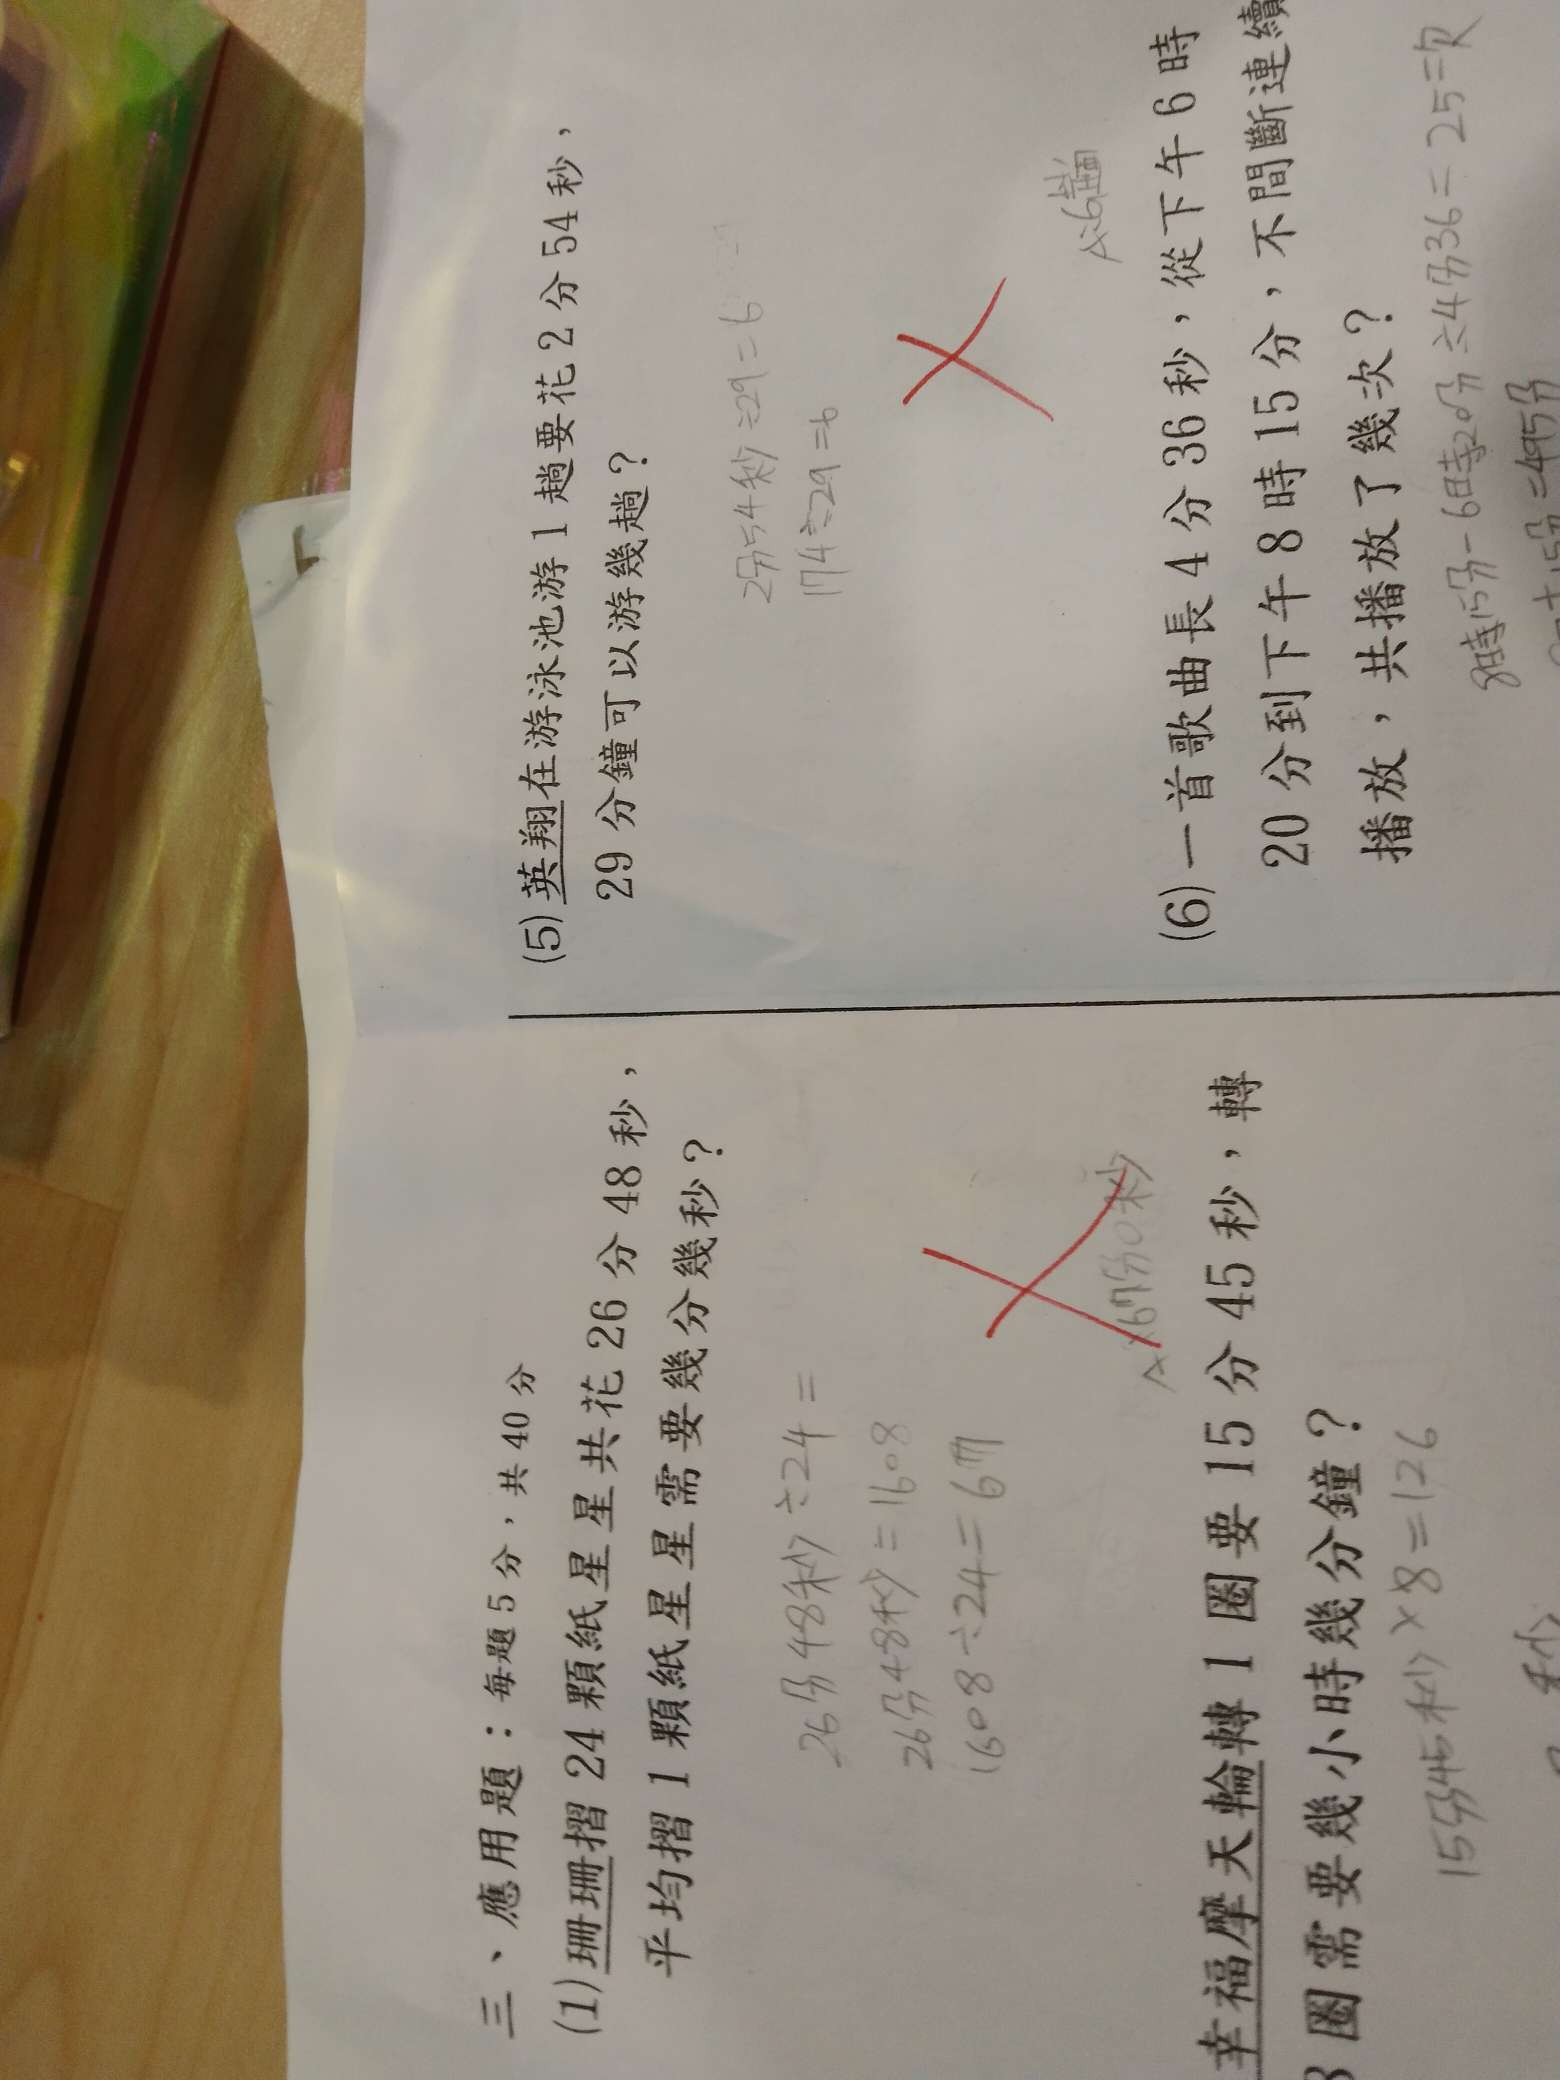 三、應用題：每題5分，共40分
(1)珊珊摺24顆紙星星共花26分48秒，
平均摺1顆紙星星需要幾分幾秒？
26分48秒÷24=
26分48秒=1608
1608÷24=67
A:67分0秒
幸福摩天輪轉1圈要15分45秒，轉
8圈需要幾小時幾分鐘？
15分45秒×8=126
秒
(5)英翔在游泳池游1趟要花2分54秒，
29分鐘可以游幾趟？
2分54秒÷29=6
174÷29=6
A:6趟
(6)一首歌曲長4分36秒，從下午6時
20分到下午8時15分，不間斷連續
播放，共播放了幾次？
8時15分-6時20分÷4分36=25=次
+15分=495分